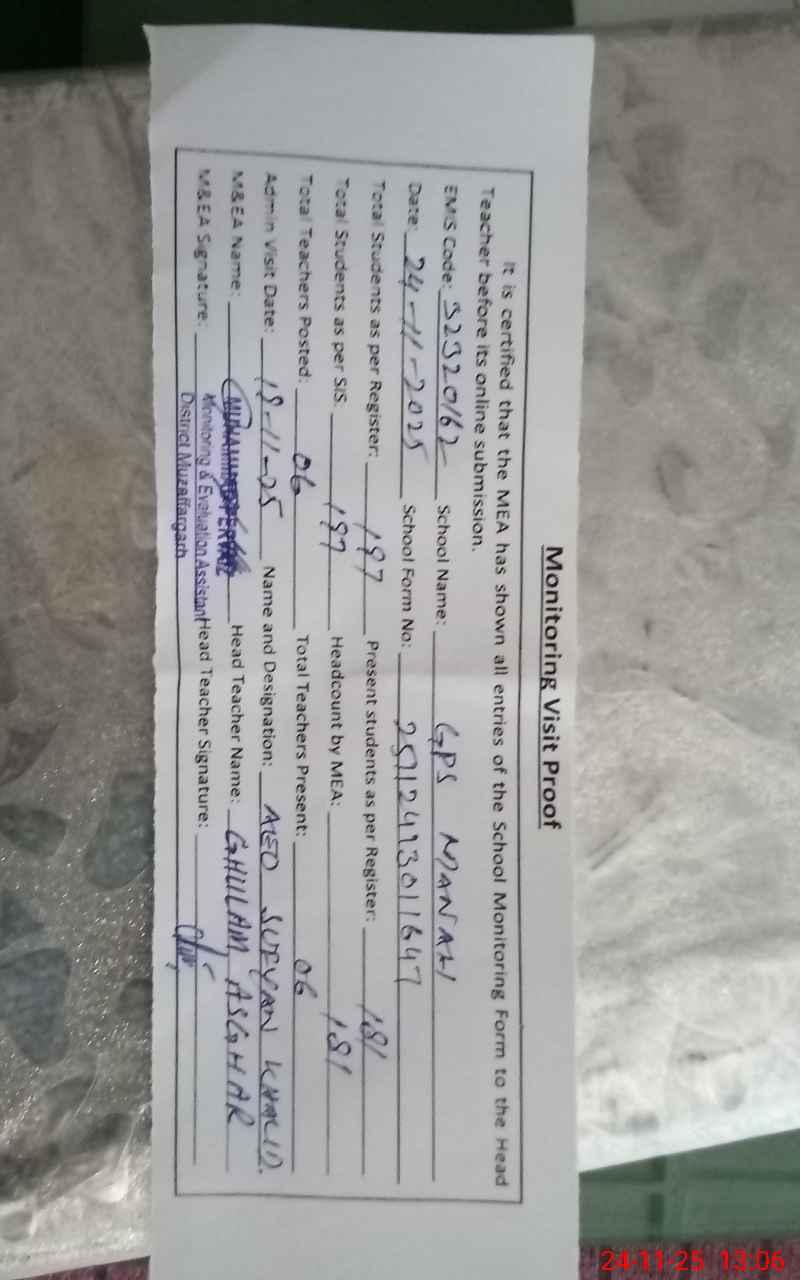 Monitoring Visit Proof
It is certified that the MEA has shown all entries of the School Monitoring Form to the Head
Teacher before its online submission.
EMIS Code: 32320162 School Name: GPS MIANAZI
Date: 24-11-2025 School Form No: 25112493011647
Total Students as per Register: 197 Present students as per Register: 181
Total Students as per SIS: 197 Headcount by MEA: 181
Total Teachers Posted: 06 Total Teachers Present: 06
Admin Visit Date: 18-11-25 Name and Designation: AEO SUFYAN KHALID.
M&EA Name: MUHAMMAD PERVAIZ Head Teacher Name: GHULAM ASGHAR
M&EA Signature: Monitoring & Evaluation Assistant Head Teacher Signature:
District Muzaffargarh
24-11-25 13:06